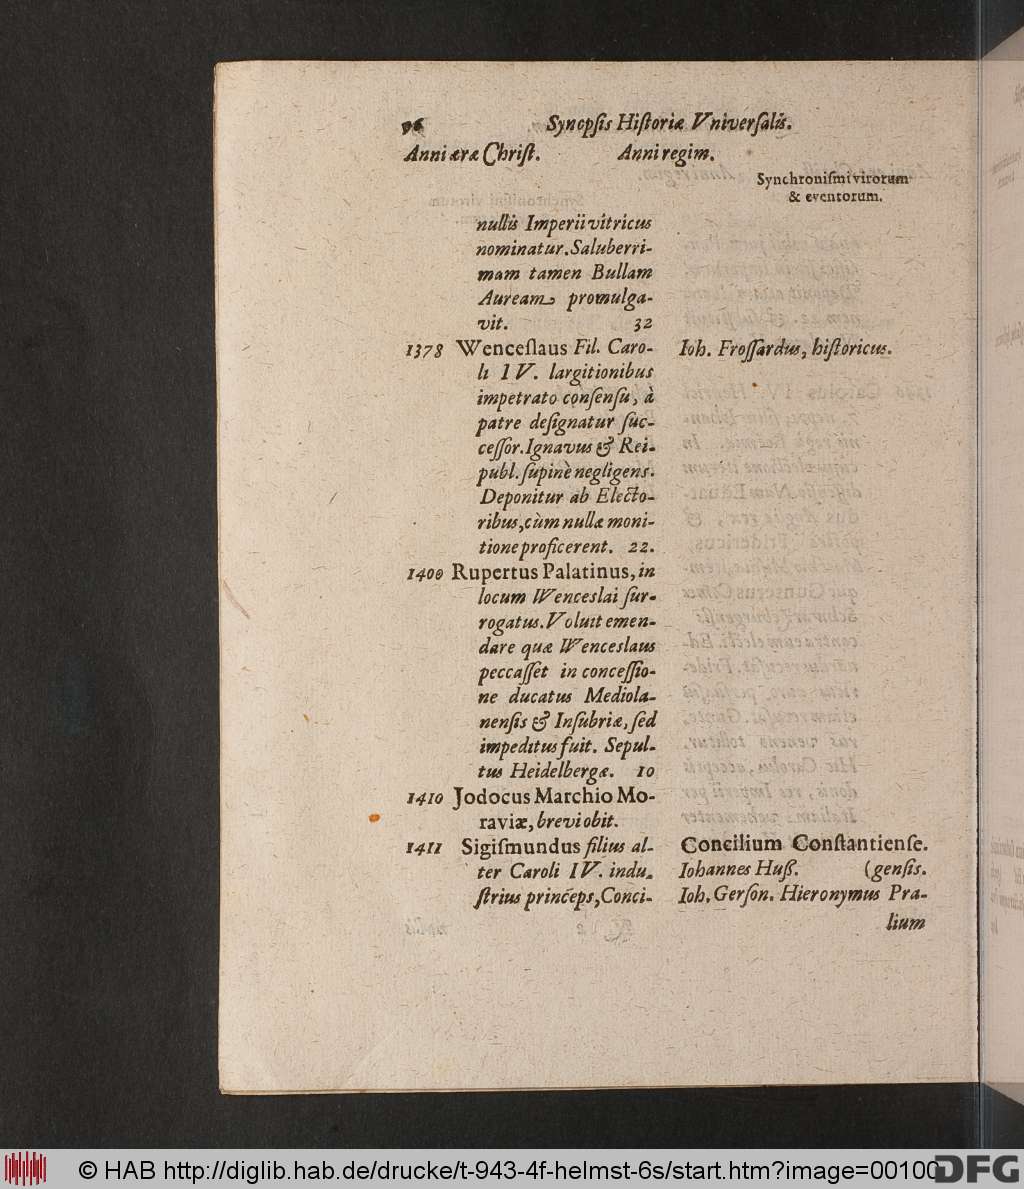 96 Synopsis Historiæ Vniversalis.
Anni æræ Christ. Anni regim.
Synchronismi virorum
& eventorum.
nullis Imperii vitricus
nominatur. Saluberri-
mam tamen Bullam
Auream promulga-
vit. 32
1378 Wenceslaus Fil. Caro- Ioh. Frossardus, historicus.
li IV. largitionibus
impetrato consensu, à
patre designatur suc-
cessor. Ignavus & Rei-
publ. supinè negligens.
Deponitur ab Electo-
ribus, cùm nullæ moni-
tione proficerent. 22.
1400 Rupertus Palatinus, in
locum Wenceslai sur-
rogatus. Voluit emen-
dare quæ Wenceslaus
peccasset in concessio-
ne ducatus Mediola-
nensis & Insubriæ, sed
impeditus fuit. Sepul-
tus Heidelbergæ. 10
1410 Jodocus Marchio Mo-
raviæ, brevi obit.
1411 Sigismundus filius al- Concilium Constantiense.
ter Caroli IV. indu- Iohannes Huß. (gensis.
strius princeps, Conci- Ioh. Gerson. Hieronymus Pra-
lium
© HAB http://diglib.hab.de/drucke/t-943-4f-helmst-6s/start.htm?image=00100
DFG